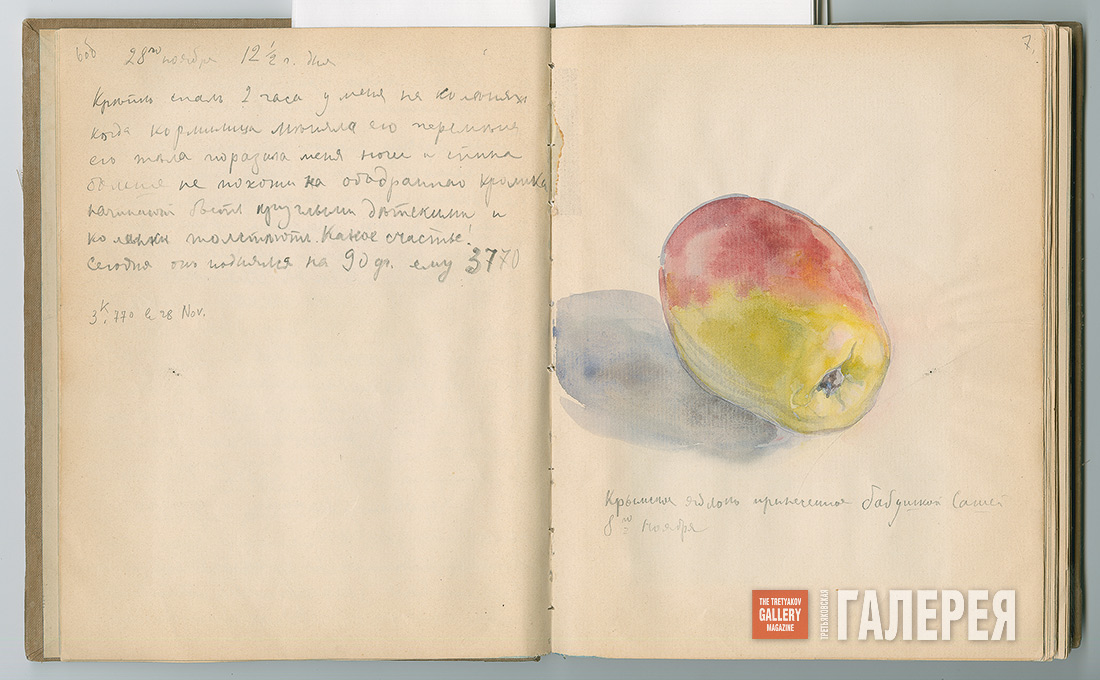 28го ноября 12 ½ ч. дня
спалъ 2 часа у меня на коленяхъ
когда кормилица меняла его перемины
его тела поразила меня ноги и спина
больше не похожи на ободраннаго кролика
начинают быть круглыми детскими и
коленки толстеютъ. Какое счастье!
Сегодня онъ поднялся на 90 гр. ему 3770
3К. 770 le 28 Nov.
7.
Крымская яблонь принесенная бабушкой Сашей
8го ноября
THE TRETYAKOV
GALLERY
MAGAZINE
ТРЕТЬЯКОВСКАЯ
ГАЛЕРЕЯ